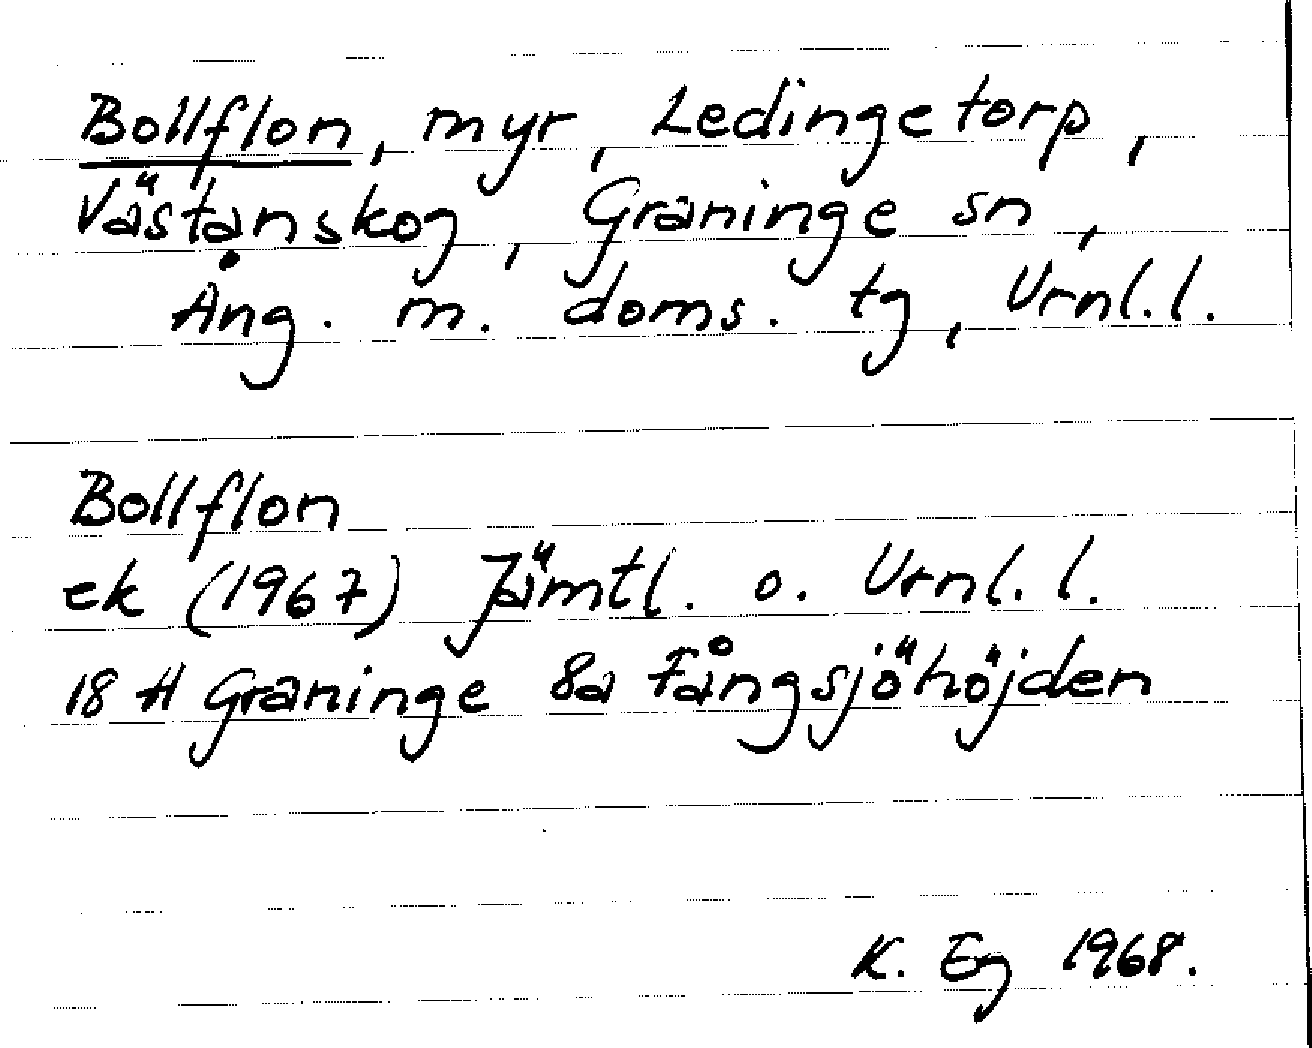 Bollflon, myr, Ledingetorp,
Västanskog, Graninge sn,
Ång. m. doms. tg, Vrnl.l.
Bollflon
ek (1967) Jämtl. o. Vrnl. l.
18 H Graninge 8a Fångsjöhöjden
K. Eg 1968.